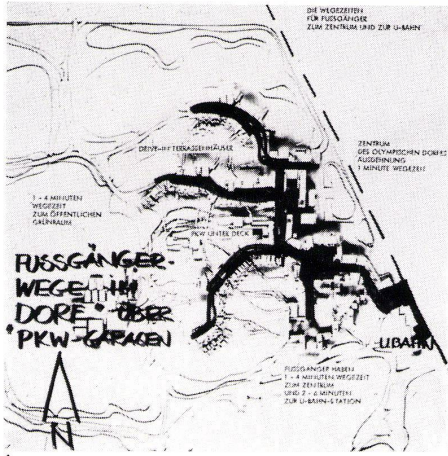 DIE WEGEZEITEN
FÜR FUSSGÄNGER
ZUM ZENTRUM UND ZUR U-BAHN
DRIVE-IN TERRASSENHÄUSER
ZENTRUM
DES OLYMPISCHEN DORFES
AUSDEHNUNG
1 MINUTE WEGEZEIT
1 - 4 MINUTEN
WEGEZEIT
ZUM ÖFFENTLICHEN
GRÜNRAUM
PKW UNTER DECK
FUSSGÄNGER-
WEGE IM
DORF ÜBER
PKW-GARAGEN
U.BAHN
FUSSGÄNGER HABEN
1 - 4 MINUTEN WEGEZEIT
ZUM ZENTRUM
UND 2 - 6 MINUTEN
ZUR U-BAHN-STATION
N